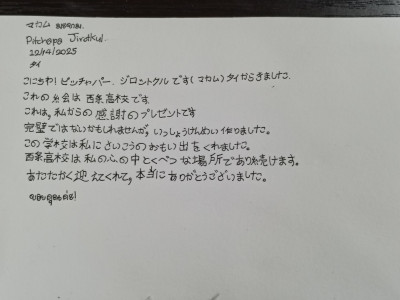 マカム
Pitchapa Jirotkul.
12/14/2025
タイ
こにちわ! ピッチャパー. ジロントクルです(マカム)タイからきました.
これの絵は西条高校です
これは、私からの感謝のプレゼントです
完璧ではないかもしれませんが、いっしょうけんめい作りました。
この学校は私にさいこうのおもい出をくれました。
西条高校は私の心の中とくべつな場所であり続けます。
あたたかく迎えてくれて、本当にありがとうございました。